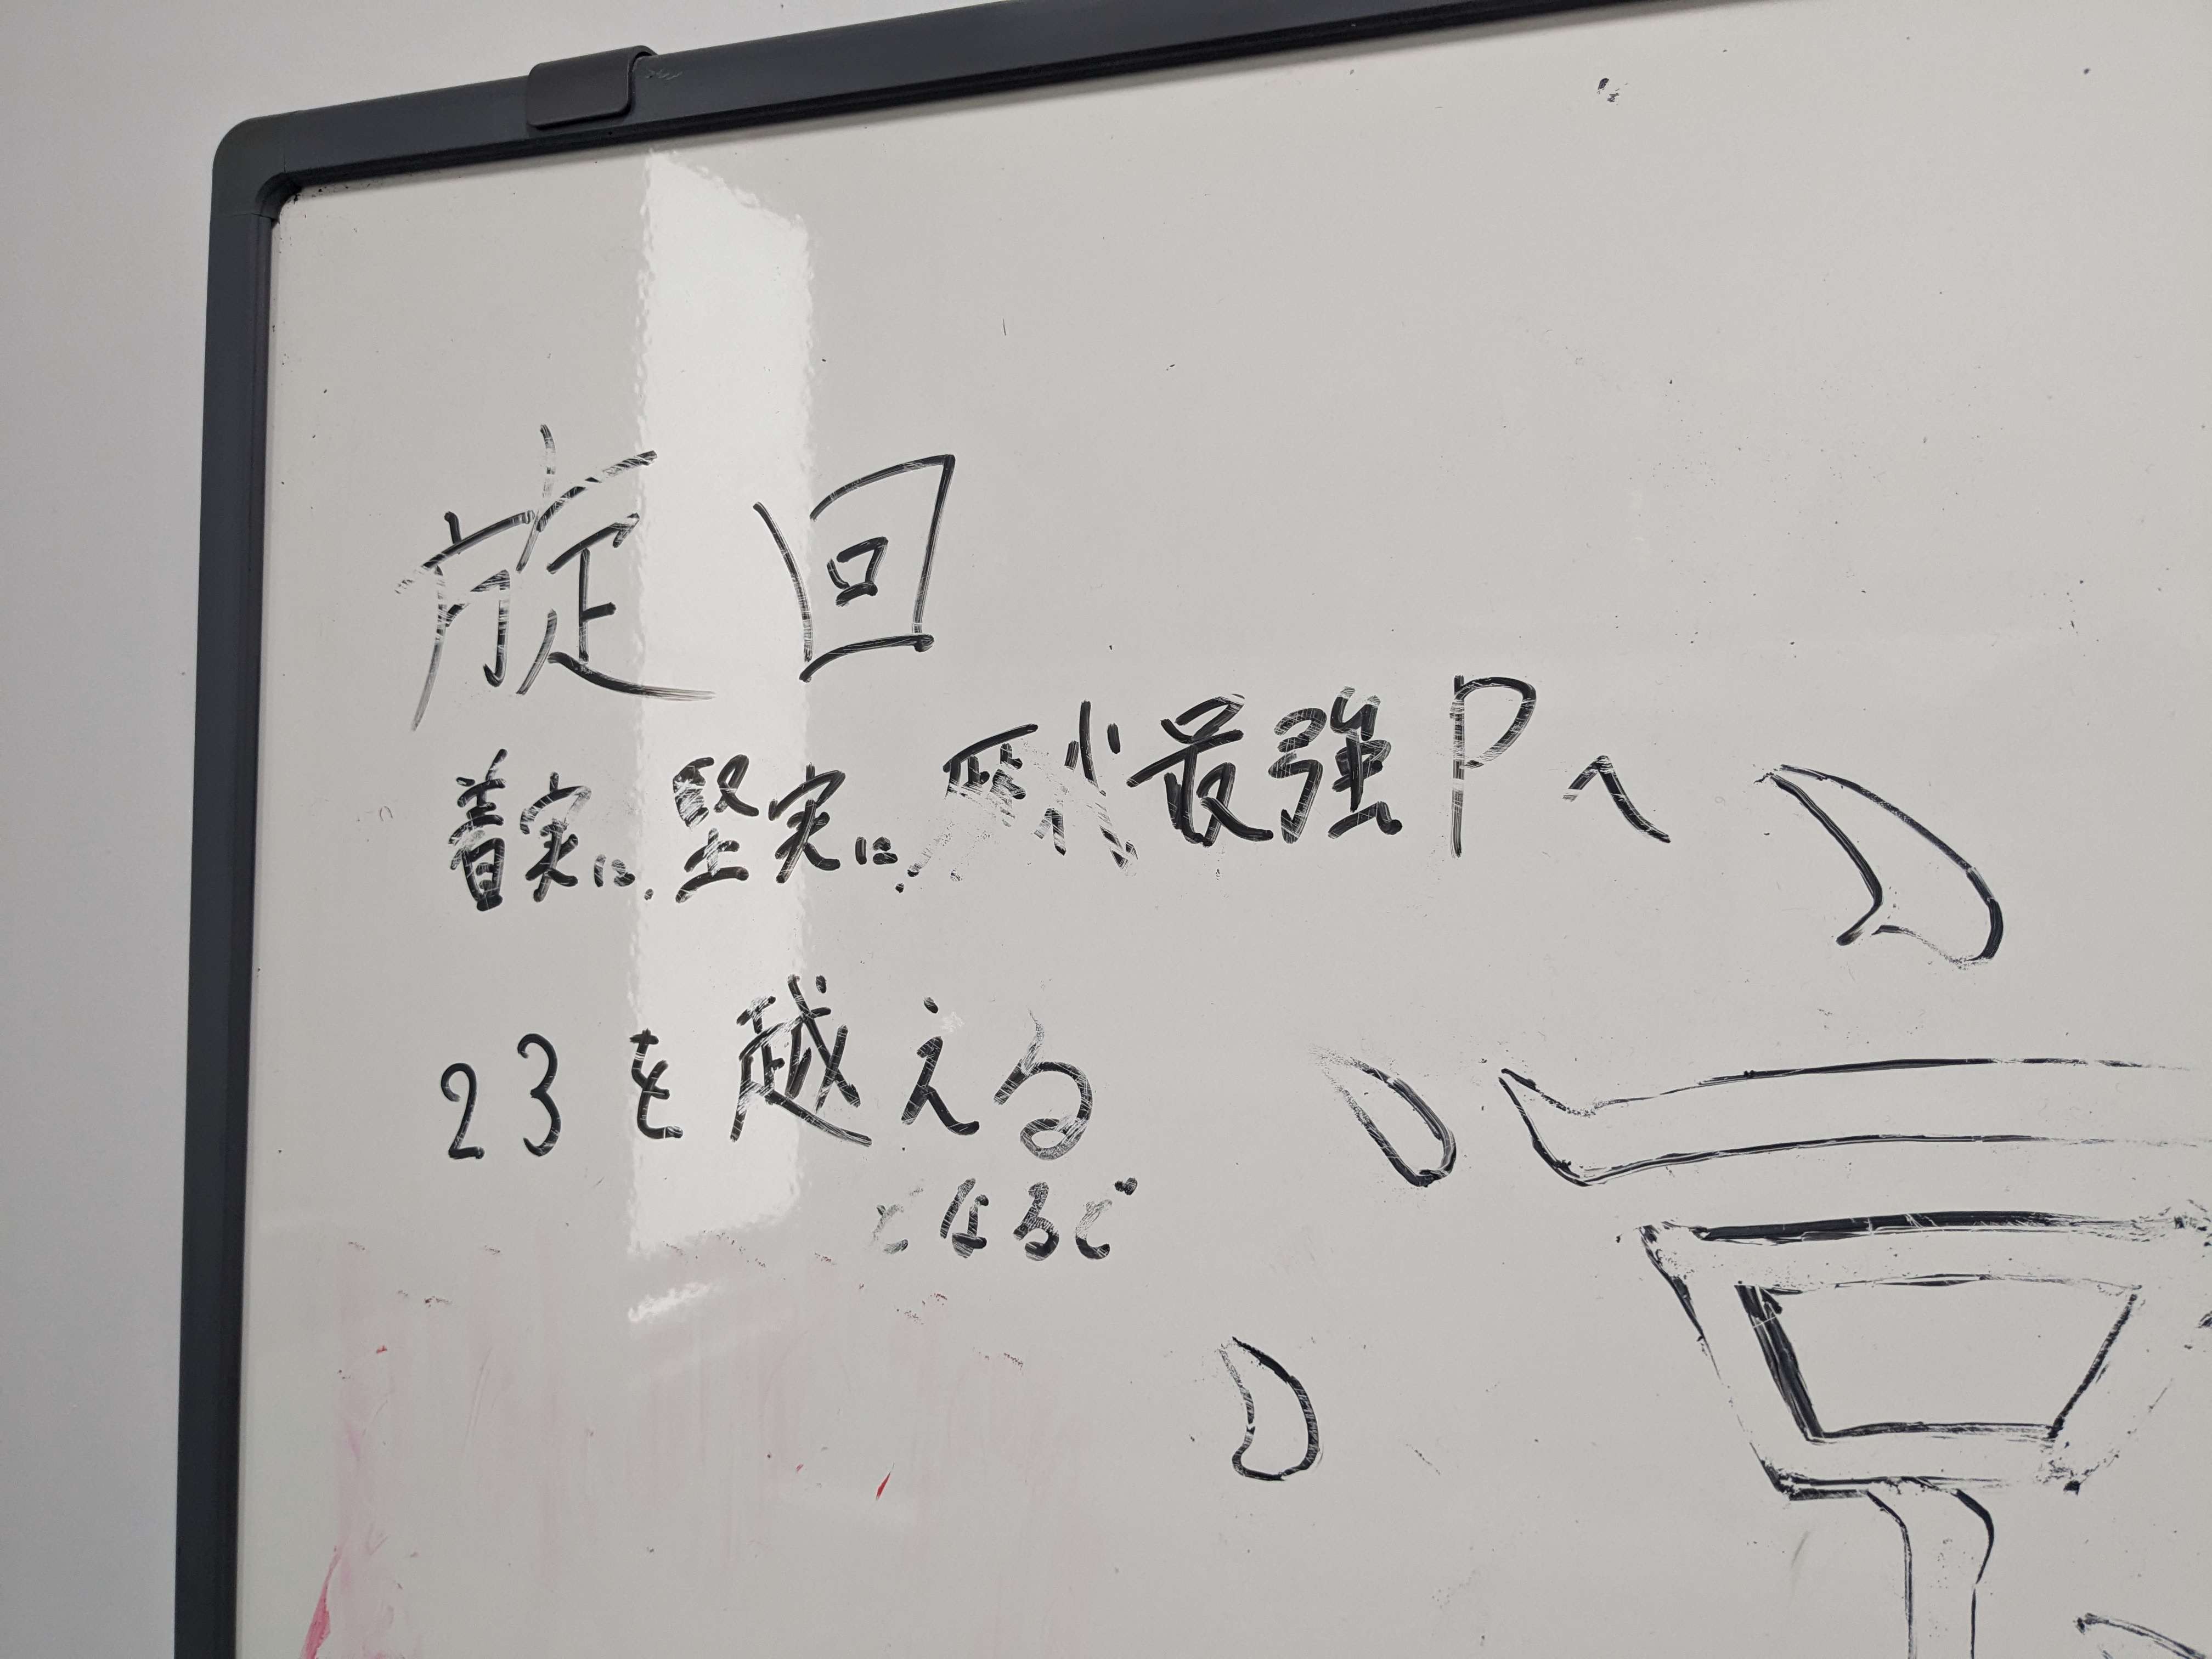 旋回
着実に、堅実に、歴代最強Pへ
23を越える
となるど